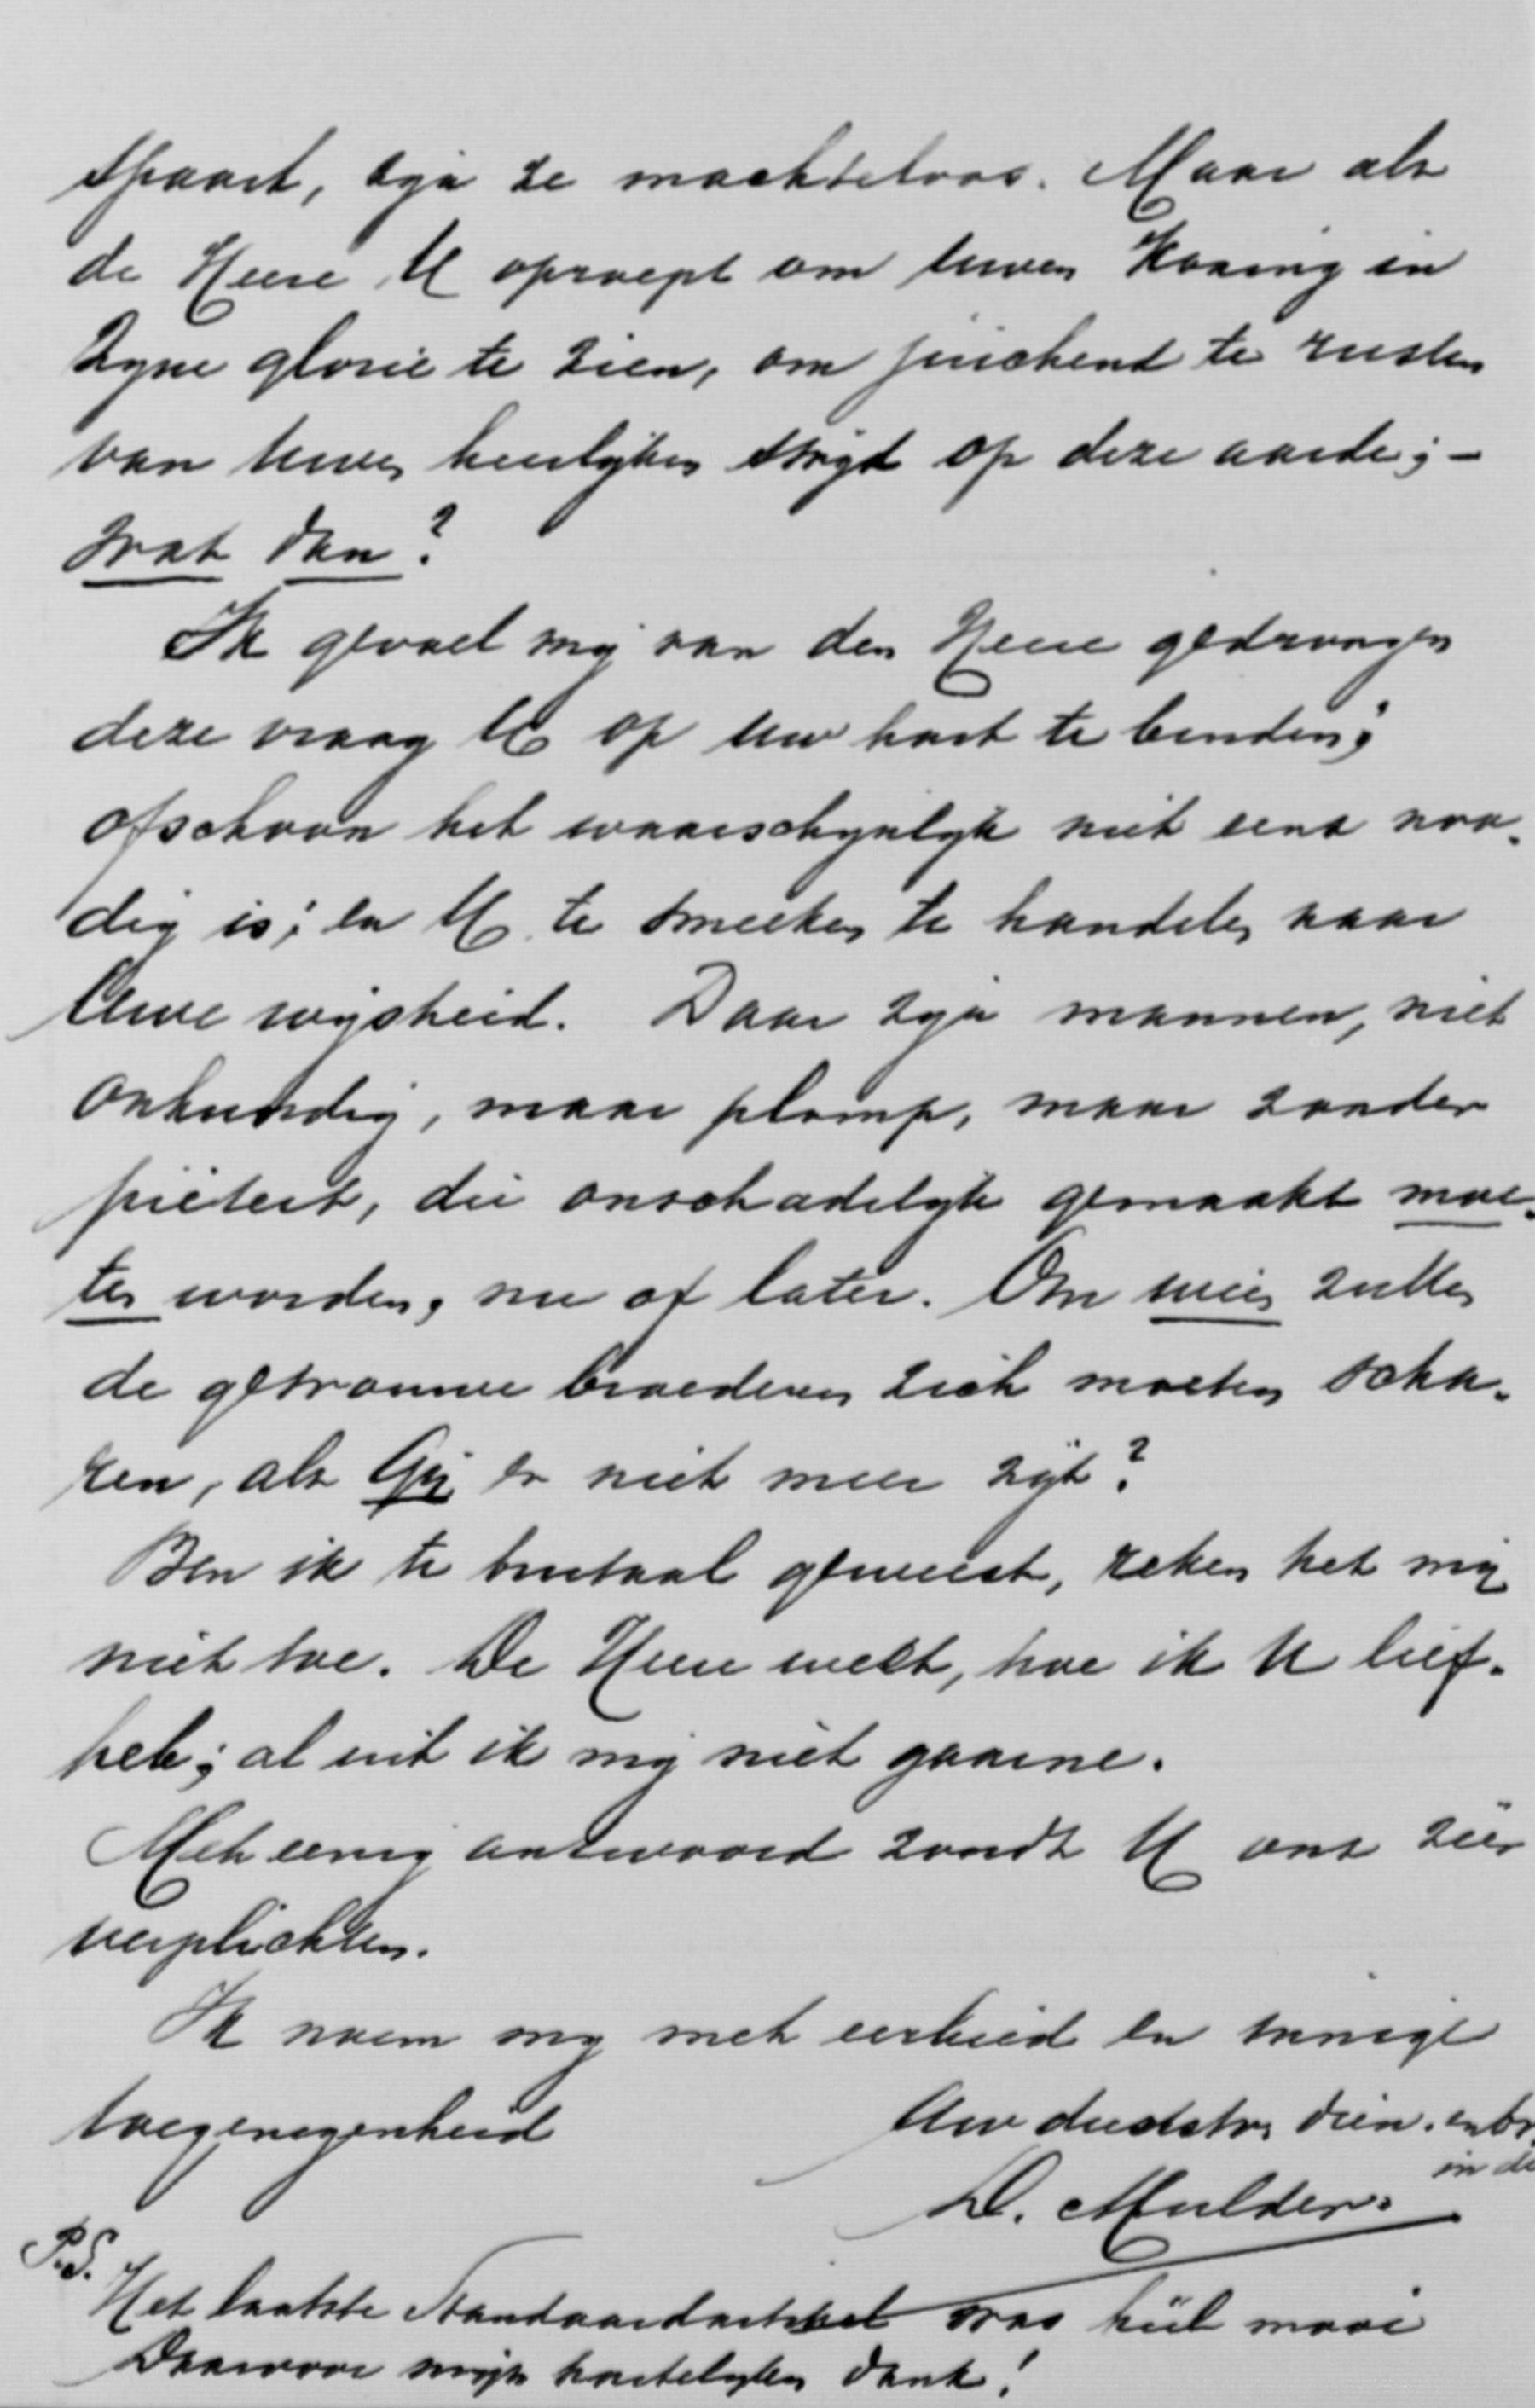 spaart, zijn ze machteloos. Maar als
de Heere U oproept om uwen Koning in
Zyne glorie te zien, om juichend te rusten
van Uwen heerlyken stryd op deze aarde; -
wat dan?
Ik gevoel my van den Heere gedrongen
deze vraag U op Uw hart te binden;
ofschoon het waarschynlyk niet eens noo-
dig is; en U te smeeken te handelen naar
Uwe wysheid. Daar zyn mannen, niet
onkundig, maar plomp, maar zonder
piëteit, die onschadelyk gemaakt moe-
ten worden, nu of later. Om wien zullen
de getrouwe broederen zich moeten scha-
ren, als Gij er niet meer zijt?
Ben ik te brutaal geweest, reken het my
niet toe. De Heere weet, hoe ik U lief-
heb; al uit ik my niet gaarne.
Met eenig antwoord zoudt U ons zeer
verplichten.
Ik noem my met eerbied en innige
toegenegenheid
Uw dw dien. en br.
in de
D. Mulder.
P.S.
Het laatste Standaardartikel was heel mooi
Daarvoor myn hartelyken dank!